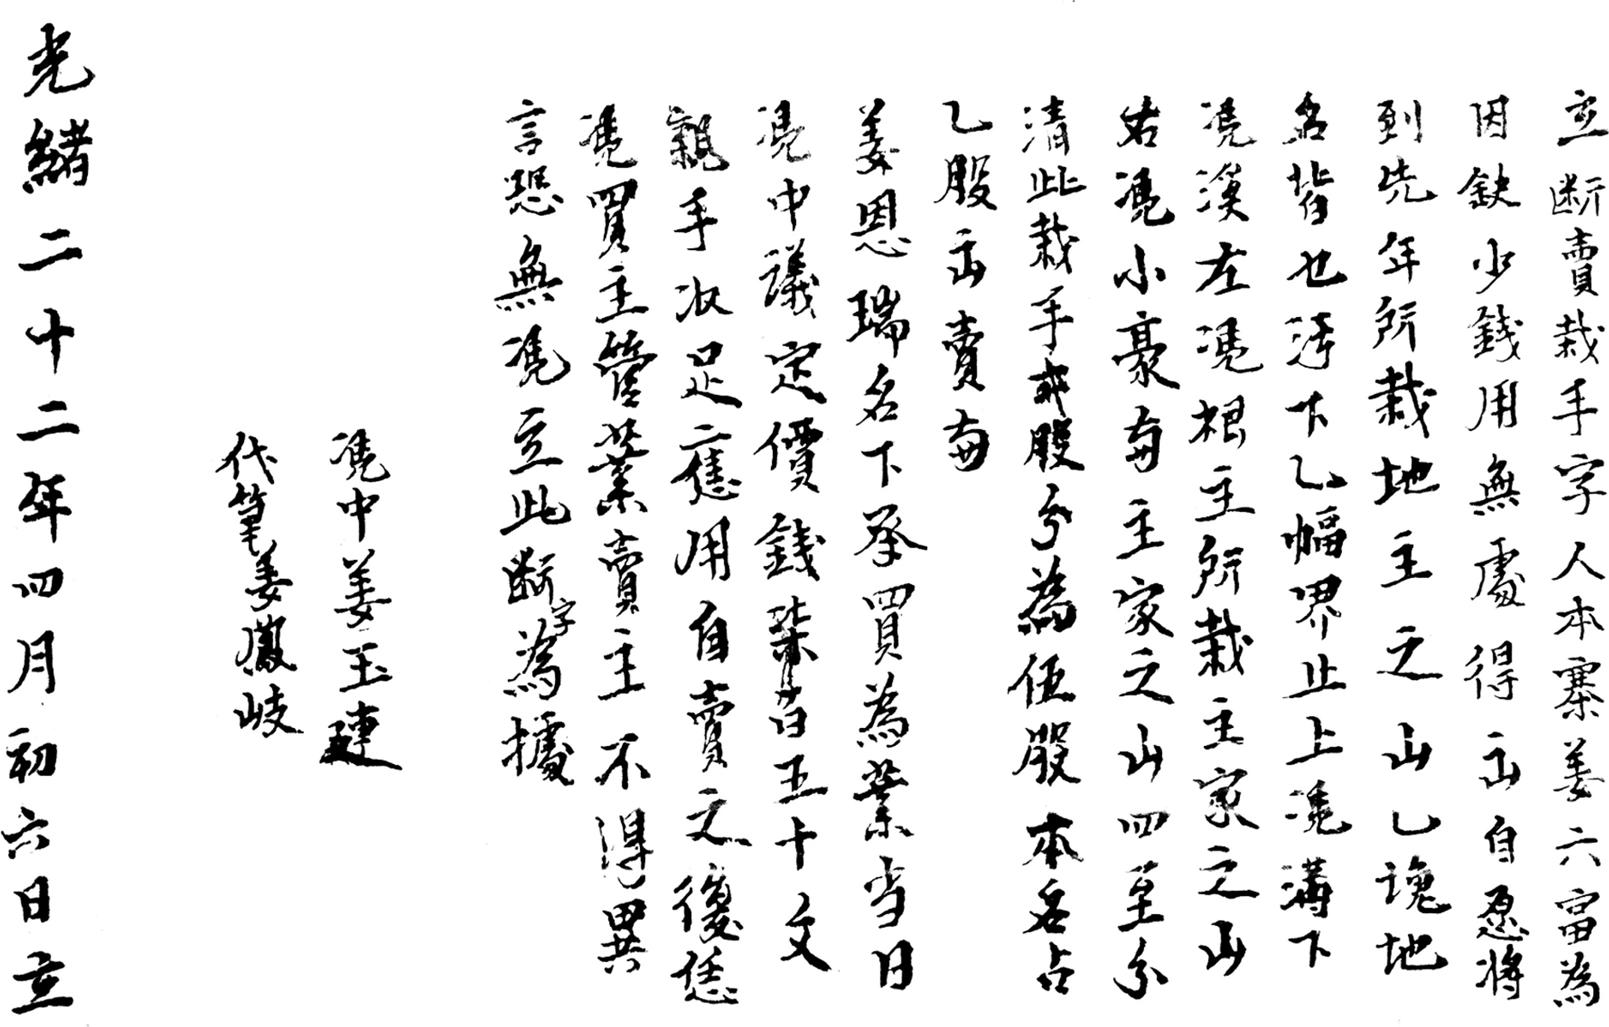 立断賣栽手字人本寨姜六富為
因缺少錢用無處得出自愿將
到先年所栽地主之山乙塊地
名皆也汙下乙幅界止上凴溝下
凴漢左凴根主所栽主家之山
右凴小豪與主家之山四至分
清此栽手貳股分為伍股本名占
乙股出賣與
姜恩瑞名下承買為業當日
凴中議定價錢柒百五十文
親手收足應用自賣之後恁
凴買主管業賣主不得異
言恐無凴立此断字為據
凴中姜玉連
代筆姜鳳岐
光緒二十二年四月初六日立